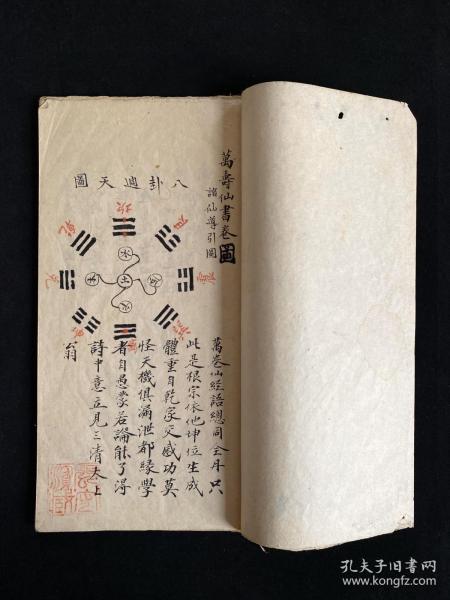 萬壽仙書卷
諸仙導引圖
八卦週天圖
坎
水
土
火
萬卷仙經語總同金丹只
此是根宗依他坤位生成
體重自乾家交感功莫
怪天機俱漏泄都緣學
者自愚蒙若論能了得
詩中意立見三清太上
翁
孔夫子旧书网
www.kongfz.com